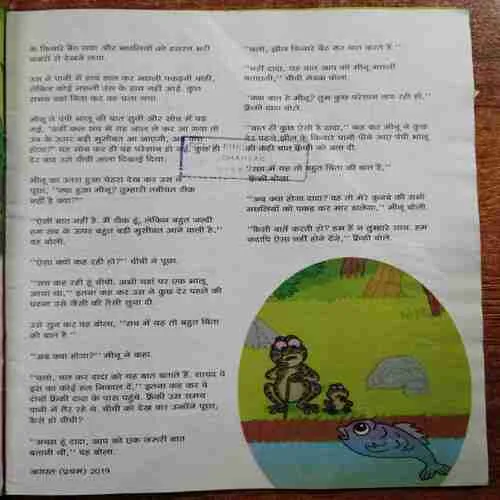 के किनारे बैठ गया और मछलियों को हसरत भरी
नजरों से देखने लगा.
उस ने पानी में हाथ डाल कर मछली पकड़नी चाही,
लेकिन कोई मछली उस के हाथ नहीं आई. कुछ
समय वहां बिता कर वह चला गया.
मीनू ने पंपी भालू की बात सुनी और सोच में पड़
गई, "कहीं कल सच में यह जाल ले कर आ गया तो
हम के ऊपर बड़ी मुसीबत आ जाएगी, अब क्या
होगा?" यह सोच कर ही वह परेशान हो गई. कुछ ही
देर बाद उसे चीची आता दिखाई दिया.
मीनू का उतरा हुआ चेहरा देख कर उस ने
पूछा, "क्या हुआ मीनू? तुम्हारी तबीयत ठीक
नहीं है क्या?"
"ऐसी बात नहीं है. मैं ठीक हूं, लेकिन बहुत जल्दी
हम सब के ऊपर बहुत बड़ी मुसीबत आने वाली है,"
वह बोली.
"ऐसा क्यों कह रही हो?" चीची ने पूछा.
"सच कह रही हूं चीची. अभी यहां पर एक भालू
आया था," इतना कह कर उस ने कुछ देर पहले की
घटना उसे जैसी की तैसी सुना दी.
उसे सुन कर वह बोला, "सच में यह तो बहुत चिंता
की बात है."
"अब क्या होगा?" मीनू ने कहा.
"चलो, चल कर दादा को यह बात बताते हैं. शायद वे
इस का कोई हल निकाल दें," इतना कह कर वे
दोनों फ्रैंकी दादा के पास पहुंचे. फ्रैंकी उस समय
पानी में तैर रहे थे. चीची को देख कर उन्होंने पूछा,
कैसे हो चीची?
"अच्छा हूं दादा, आप को एक जरूरी बात
बतानी थी," वह बोला.
अगस्त (प्रथम) 2019
"चलो, झील किनारे बैठ कर बात करते हैं."
"नहीं दादा, यह बात आप को मीनू मछली
बताएगी," चीची मेंढक बोला.
"क्या बात है मीनू? तुम कुछ परेशान लग रही हो,"
फ्रैंकी दादा बोले.
"बात ही कुछ ऐसी है दादा," कह कर मीनू ने कुछ
देर पहले झील के किनारे पानी पीने आए पंपी भालू
की कही बात फ्रैंकी को बता दी.
"सच में यह तो बहुत चिंता की बात है,"
फ्रैंकी बोला.
"अब क्या होगा दादा? वह तो मेरे कुनबे की सभी
मछलियों को पकड़ कर मार डालेगा," मीनू बोली.
"कैसी बातें करती हो? हम हैं न तुम्हारे साथ. हम
कदापि ऐसा नहीं होने देंगे," फ्रैंकी बोले.